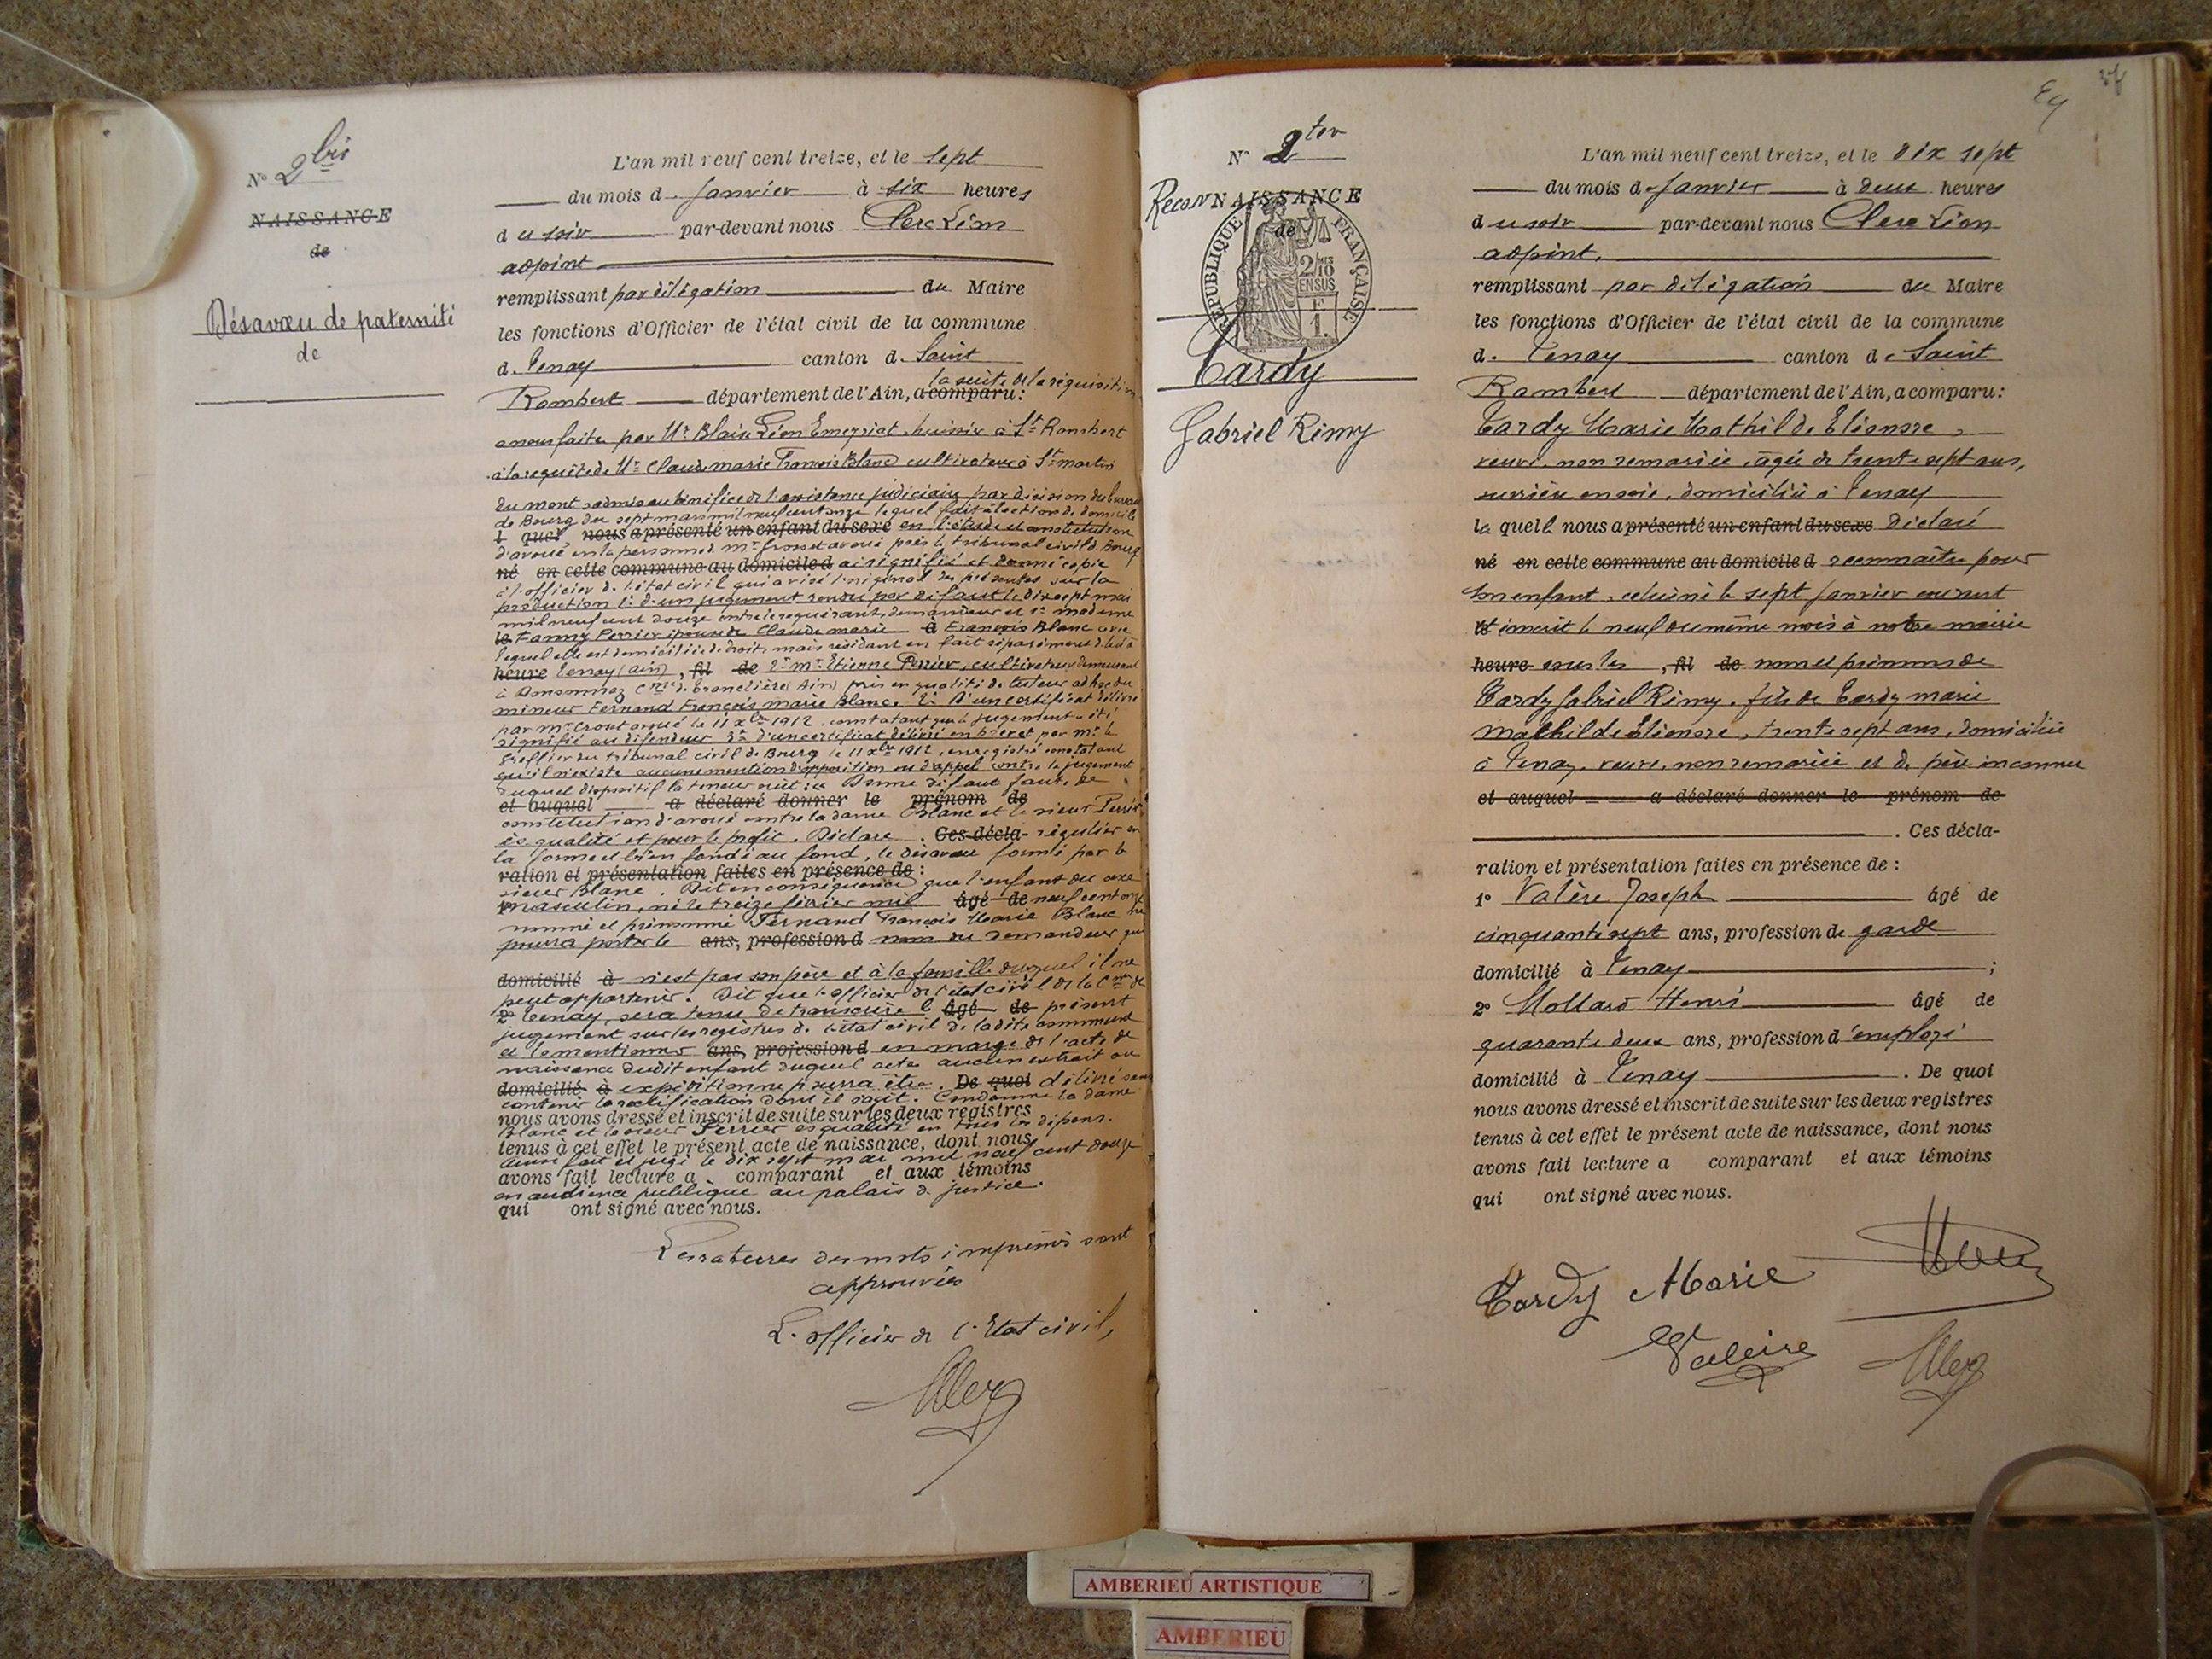 N° 2 bis
NAISSANCE
de
Désaveu de paternité
de
L'an mil neuf cent treize, et le sept
du mois d. Janvier à six heures
du soir par-devant nous Clerc Léon
adjoint
remplissant par délégation du Maire
les fonctions d'Officier de l'état civil de la commune
d. Tenay canton d. Saint
la suite de la réquisition
Rambert département de l'Ain, a comparu:
a nous faite par Me Blaise Léon Emeyriat huissier à St Rambert
à la requête de Mr Claude marie François Blanc cultivateur à St martin
du mont admis au bénéfice de l'assistance judiciaire par décision du bureau
de Bourg du sept mars mil neuf cent onze lequel fait élection de domicile
l quel nous a présenté un enfant du sexe en l'étude et constitution
d'avoué en la personne de me Grosset avoué près le tribunal civil d. Bourg
né en cette commune au domicile d ai signifié et donné copie
à l'officier de l'état civil qui a visé l'original des présentes sur la
production 1° d'un jugement rendu par défaut le dix sept mai
mil neuf cent douze entre le requérant, demandeur et 1° madame
le Fanny Perrier épouse de Claude marie à François Blanc avec
lequel elle est domiciliée de droit, mais résidant en fait séparément de lui à
heure Tenay (ain), fil de 2° mr Etienne Perrier, cultivateur demeurant
à cne de Tranclière (Ain) pris en qualité de tuteur ad hoc du
mineur Fernand François marie Blanc. 2° D'un certificat délivré
par me avoué le 11 xbre 1912 constatant que le jugement a été
signifié au défendeur 3° d'un certificat délivré en brevet par mr le
Greffier du tribunal civil de Bourg le 11 xbre 1912, enregistré constatant
qu'il n'existe aucune mention d'opposition ou d'appel contre le jugement
duquel dispositif la teneur suit: Donne défaut faute de
et auquel a déclaré donner le prénom de
constitution d'avoué contre la dame Blanc et le sieur Perrier
ès qualité et pour le profit. Déclare . Ces décla- régulier en
la forme et bien fondé au fond, le désaveu formé par le
ration et présentation faites en présence de :
sieur Blanc. Dit en conséquence que l'enfant du sexe
masculin, né le treize février mil âgé de neuf cent onze
nommé et prénommé Fernand François Marie Blanc ne
pourra porter le ans, profession d nom du demandeur qui
domicilié à n'est pas son père et à la famille duquel il ne
peut appartenir. Dit que l'officier de l'état civil de la Cne de
2° Tenay, sera tenu de transcrire l âgé de présent
jugement sur les registres de l'état civil de la dite commune
et le mentionner ans, profession d en marge de l'acte de
naissance dudit enfant duquel acte aucun extrait ou
domicilié à expédition ne pourra être . De quoi délivré sans
contenir la rectification dont il s'agit. Condamne la dame
nous avons dressé et inscrit de suite sur les deux registres
Blanc et le sieur Perrier ès qualité en tous les dépens.
tenus à cet effet le présent acte de naissance, dont nous
Ainsi fait et jugé le dix sept mai mil neuf cent douze
avons fait lecture a comparant et aux témoins
en audience publique au palais de justice.
qui ont signé avec nous.
Les ratures des mots imprimés sont
approuvées
L'officier de l'Etat civil,
N° 2 ter
ReconNAISSANCE
de
REPUBLIQUE FRANÇAISE
2/10 EN SUS
F 1.
Tardy
Gabriel Rémy
L'an mil neuf cent treize, et le dix sept
du mois d. Janvier à deux heures
du soir par-devant nous Clerc Léon
adjoint.
remplissant par délégation du Maire
les fonctions d'Officier de l'état civil de la commune
d. Tenay canton de Saint
Rambert département de l'Ain, a comparu:
Tardy Marie Mathilde Eléonore,
veuve, non remariée, âgée de trente sept ans,
ouvrière en soie, domiciliée à Tenay
laquelle nous a présenté un enfant du sexe déclaré
né en cette commune au domicile d reconnaître pour
son enfant, celui né le sept janvier courant
et inscrit le neuf du même mois à notre mairie
heure sous les , fil de nom et prénoms de
Tardy Gabriel Rémy, fils de Tardy marie
mathilde Eléonore, trente sept ans, domiciliée
à Tenay, veuve, non remariée et de père inconnu
et auquel a déclaré donner le prénom de
. Ces décla-
ration et présentation faites en présence de :
1° Valère Joseph âgé de
cinquante sept ans, profession de garde
domicilié à Tenay ;
2° Mollard Henri âgé de
quarante deux ans, profession d'employé
domicilié à Tenay . De quoi
nous avons dressé et inscrit de suite sur les deux registres
tenus à cet effet le présent acte de naissance, dont nous
avons fait lecture a comparant et aux témoins
qui ont signé avec nous.
Tardy Marie
Valère
AMBERIEU ARTISTIQUE
AMBERIEU